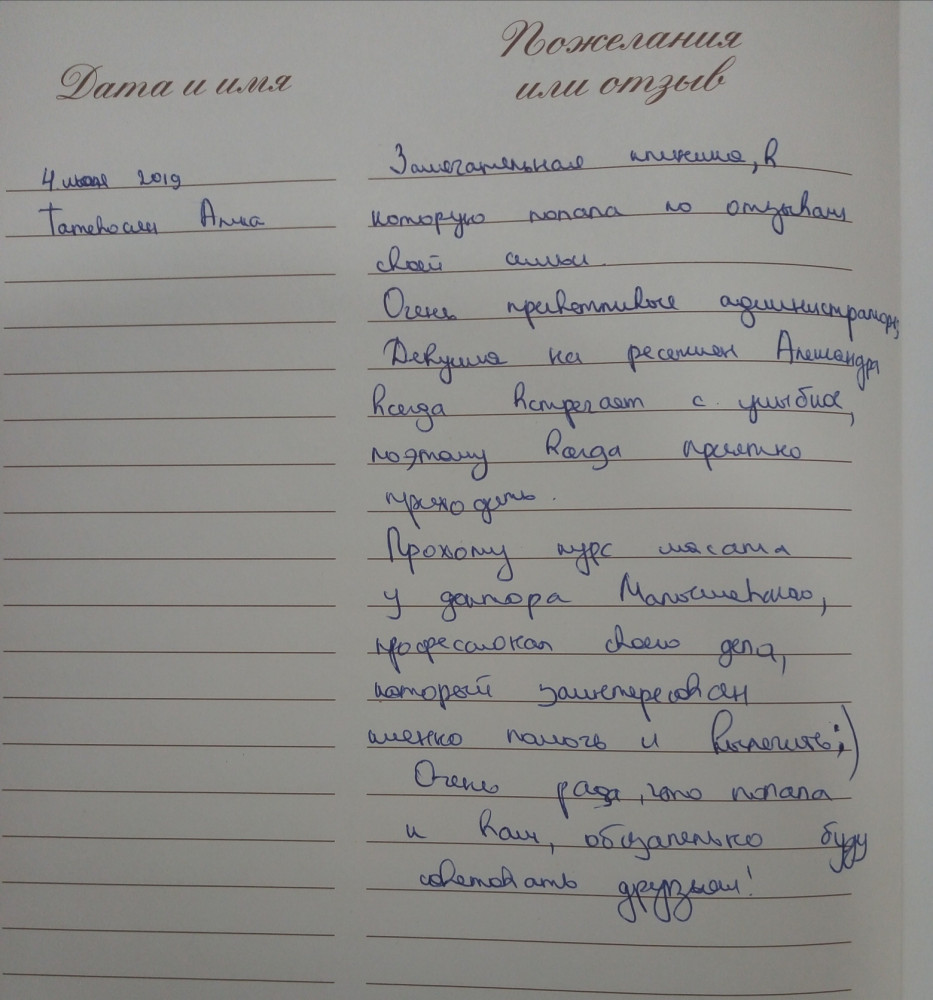 Дата и имя
Пожелания
или отзыв
4 июля 2019
Татевосян Анна
Замечательная клиника, в
которую попала по отзывам
своей семьи.
Очень приветливые администраторы,
Девушка на ресепшен Александра
всегда встречает с улыбкой,
поэтому всегда приятно
приходить.
Прохожу курс массажа
у доктора Малышевского,
профессионал своего дела,
который заинтересован
именно помочь и вылечить;)
Очень рада, что попала
к вам, обязательно буду
советовать друзьям!